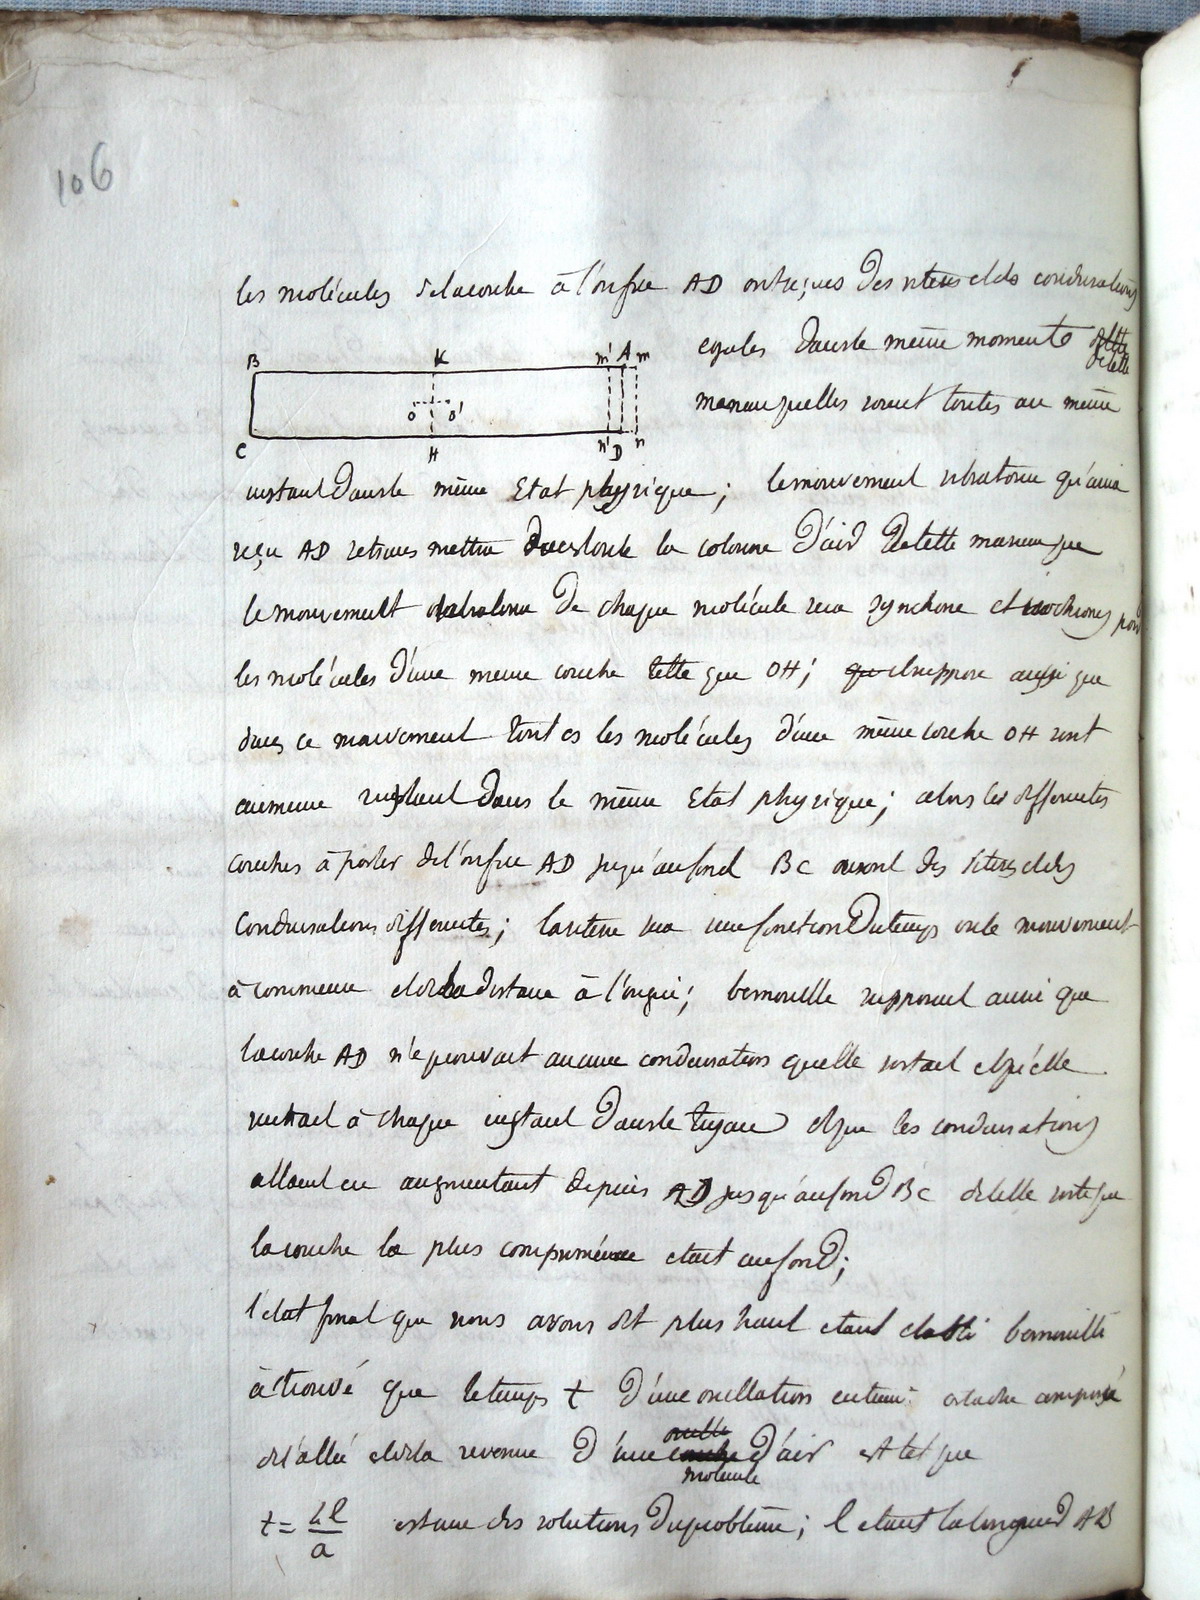 106
les molécules de la couche à l'orifice AD ont reçues des vitesses et des condensations
egales dans le même moment de telle
maniere quelles soient toutes au même
B K m' A m
o o'
C H n' D n
instant dans le même Etat physique; le mouvement vibratoire qu'aura
reçu AD se transmettra dans toute la colonne d'air de telle maniere que
le mouvement vibratoire de chaque molécule sera synchrone et isochrones pour
les molécules d'une meme couche telle que OH; il suppose aussi que
dans ce mouvement toutes les molécules d'une même couche OH sont
au meme instant dans le même Etat physique; alors les differentes
couches à partir de l'orifice AD jusqu'au fond BC auront des vitesses et des
Condensations differentes; la vitesse sera une fonction du temps où le mouvement
à commencé et de la distance à l'origine; bernouille supposait aussi que
la couche AD n'eprouvait aucune condensation quelle sortait et qu'elle
rentrait à chaque instant dans le tuyau et que les condensations
allaient en augmentant depuis AD jusqu'au fond BC de telle sorte que
la couche la plus comprimée etait au fond;
l'etat final que nous avons dit plus haut etant etabli bernouille
à trouvé que le temps t d'une oscillation entiere c'est a dire composée
de l'allée et de la revenue d'une molecule d'air est tel que
t = 4l/a est une des solutions du problême; l etant la longueur AB